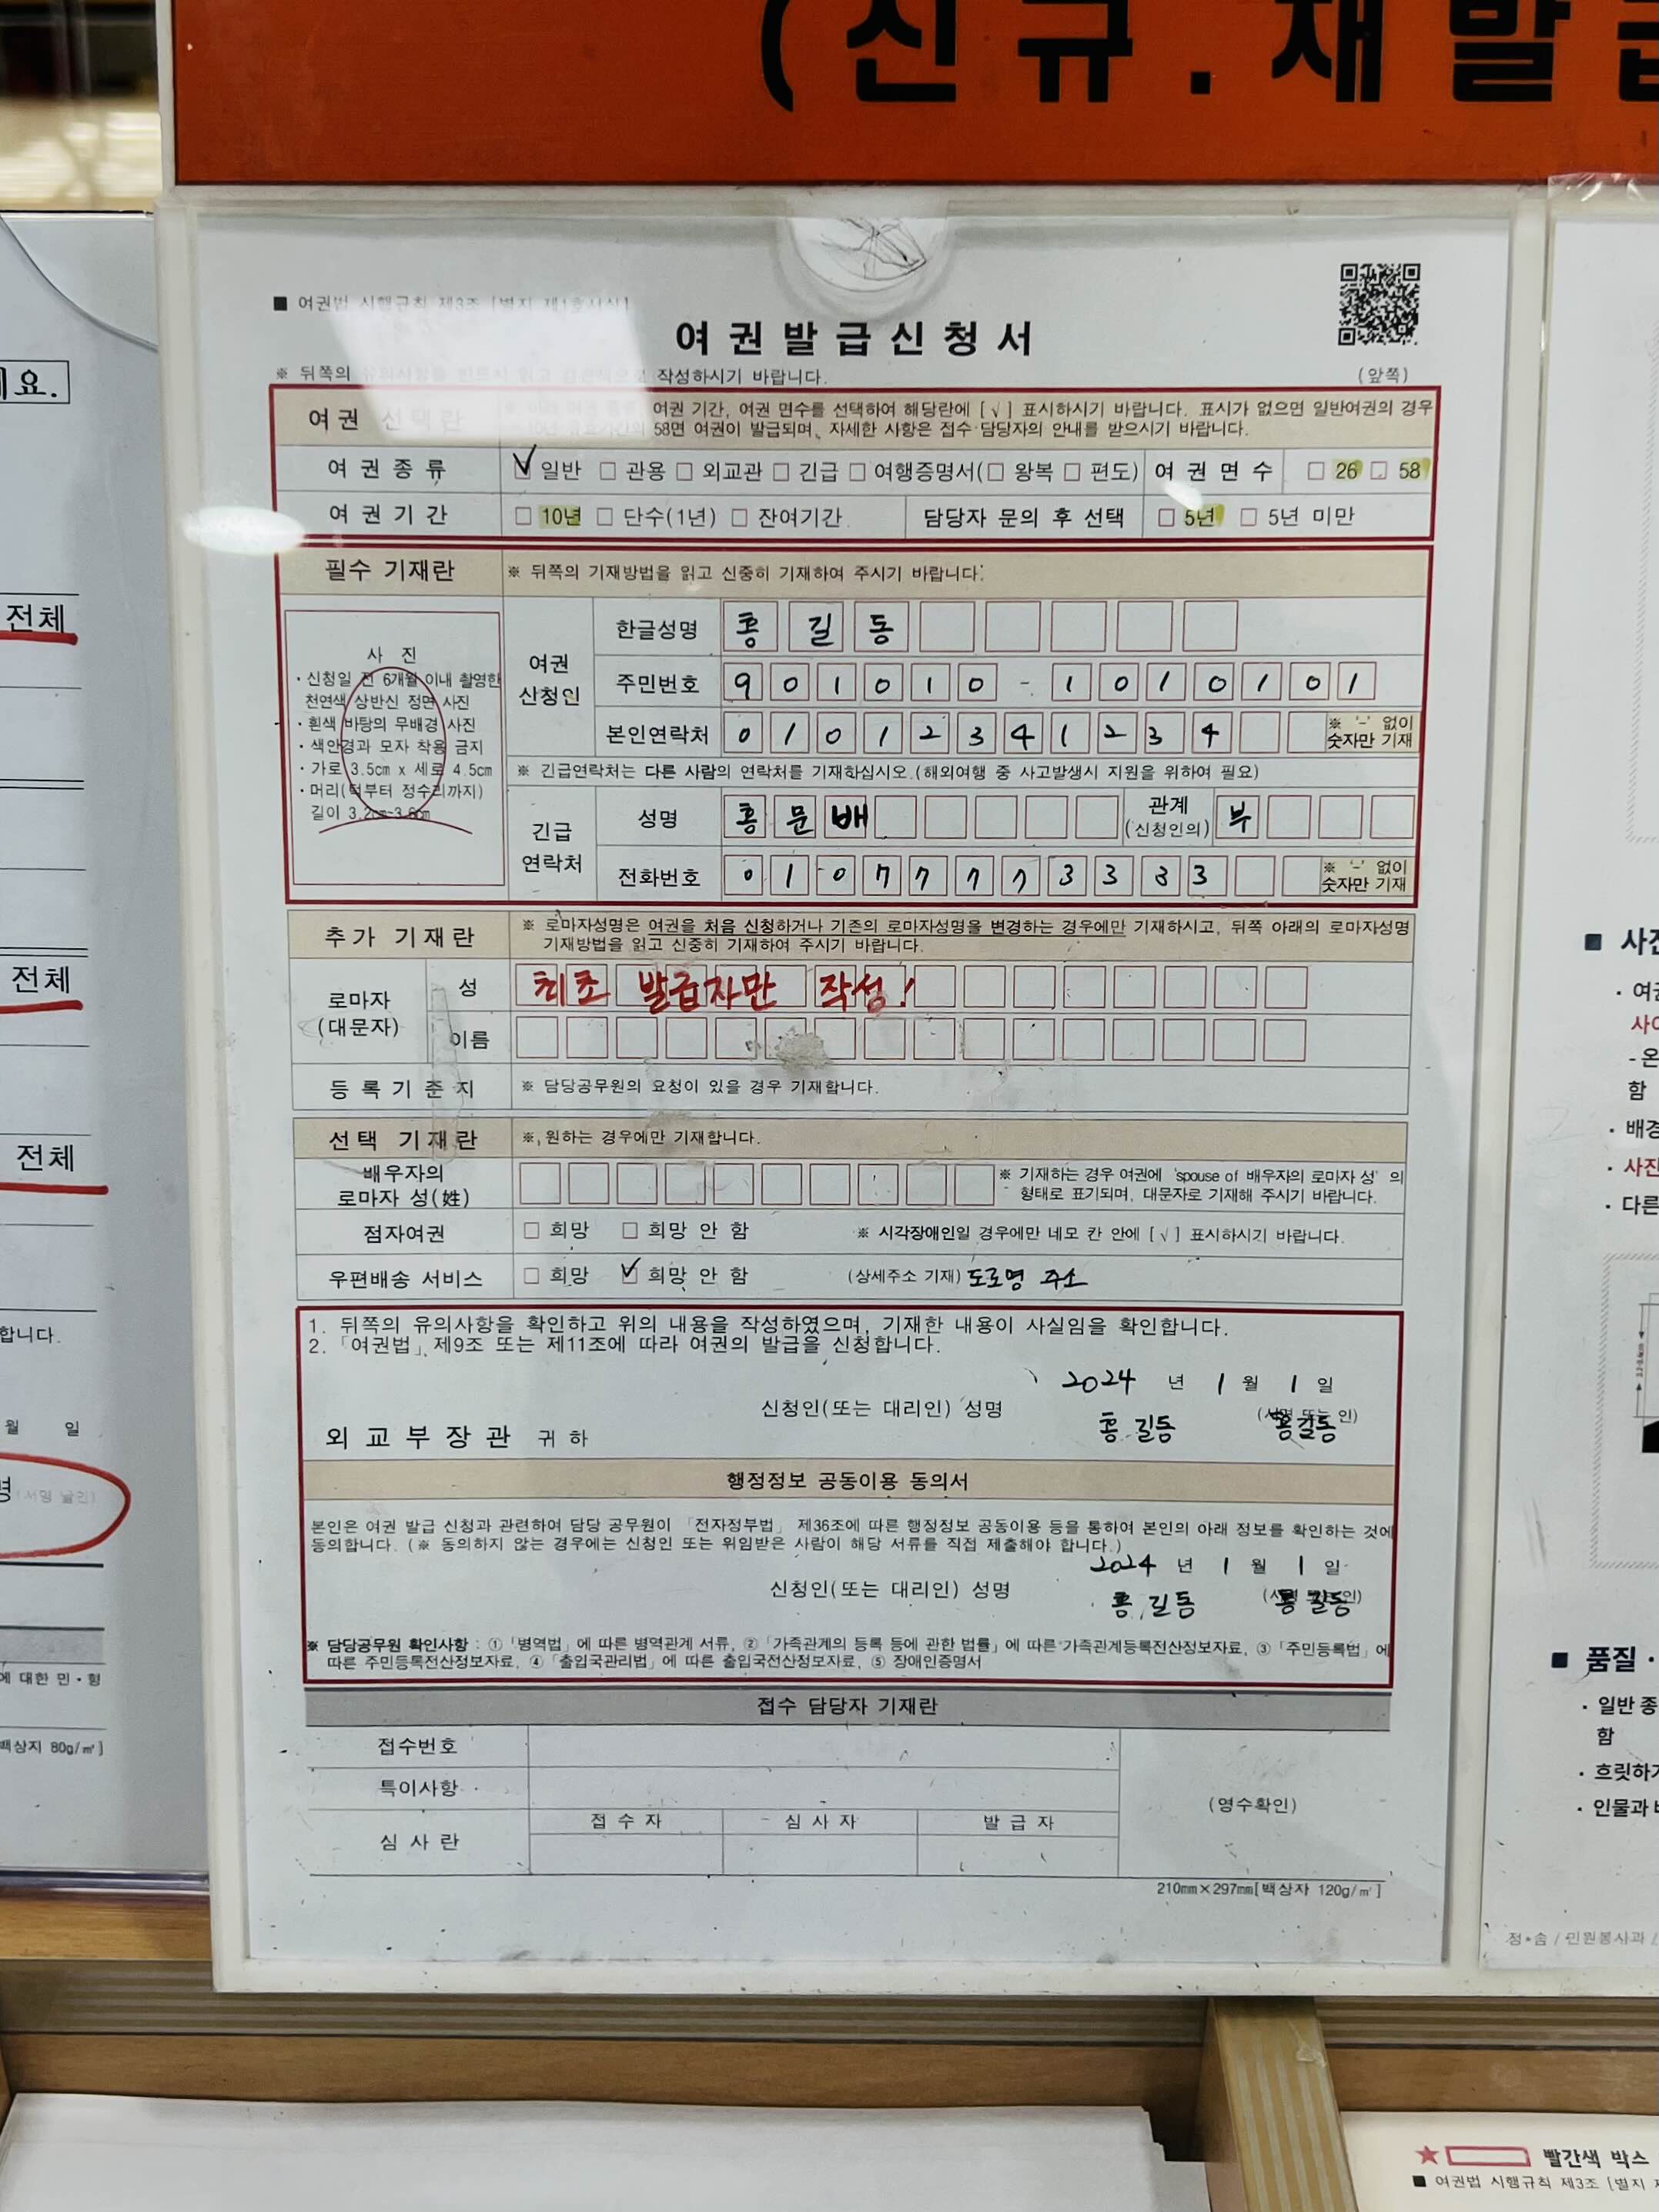 (신규.재발급
■ 여권법 시행규칙 제3조 [별지 제1호서식]
여권발급신청서
※ 뒤쪽의 작성하시기 바랍니다.
(앞쪽)
여권 선택란
여권 기간, 여권 면수를 선택하여 해당란에 [√] 표시하시기 바랍니다. 표시가 없으면 일반여권의 경우
58면 여권이 발급되며, 자세한 사항은 접수 담당자의 안내를 받으시기 바랍니다.
여권종류 ☑ 일반 □ 관용 □ 외교관 □ 긴급 □ 여행증명서(□ 왕복 □ 편도) 여권면수 □ 26 □ 58
여권기간 □ 10년 □ 단수(1년) □ 잔여기간 담당자 문의 후 선택 □ 5년 □ 5년 미만
필수 기재란 ※ 뒤쪽의 기재방법을 읽고 신중히 기재하여 주시기 바랍니다.
사 진
· 신청일 전 6개월 이내 촬영한
천연색 상반신 정면 사진
· 흰색 바탕의 무배경 사진
· 색안경과 모자 착용 금지
· 가로 3.5cm x 세로 4.5cm
· 머리(턱부터 정수리까지)
길이 3.2cm~3.6cm
여권
신청인
한글성명 홍 길 동
주민번호 901010-1010101
본인연락처 01012341234 ※ '-' 없이
숫자만 기재
※ 긴급연락처는 다른 사람의 연락처를 기재하십시오.(해외여행 중 사고발생시 지원을 위하여 필요)
긴급
연락처
성명 홍 문 배 관계
(신청인의) 부
전화번호 01077773333 ※ '-' 없이
숫자만 기재
추가 기재란 ※ 로마자성명은 여권을 처음 신청하거나 기존의 로마자성명을 변경하는 경우에만 기재하시고, 뒤쪽 아래의 로마자성명
기재방법을 읽고 신중히 기재하여 주시기 바랍니다.
로마자
(대문자)
성 최초 발급자만 작성!
이름
등록기준지 ※ 담당공무원의 요청이 있을 경우 기재합니다.
선택 기재란 ※ 원하는 경우에만 기재합니다.
배우자의
로마자 성(姓)
※ 기재하는 경우 여권에 'spouse of 배우자의 로마자 성' 의
형태로 표기되며, 대문자로 기재해 주시기 바랍니다.
점자여권 □ 희망 □ 희망 안 함 ※ 시각장애인일 경우에만 네모 칸 안에 [√] 표시하시기 바랍니다.
우편배송 서비스 □ 희망 ☑ 희망 안 함 (상세주소 기재) 도로명 주소
1. 뒤쪽의 유의사항을 확인하고 위의 내용을 작성하였으며, 기재한 내용이 사실임을 확인합니다.
2. 「여권법」 제9조 또는 제11조에 따라 여권의 발급을 신청합니다.
2024 년 1 월 1 일
신청인(또는 대리인) 성명 홍길동 (서명 또는 인) 홍길동
외교부장관 귀하
행정정보 공동이용 동의서
본인은 여권 발급 신청과 관련하여 담당 공무원이 「전자정부법」 제36조에 따른 행정정보 공동이용 등을 통하여 본인의 아래 정보를 확인하는 것에
동의합니다. (※ 동의하지 않는 경우에는 신청인 또는 위임받은 사람이 해당 서류를 직접 제출해야 합니다.)
2024 년 1 월 1 일
신청인(또는 대리인) 성명 홍길동 홍길동
※ 담당공무원 확인사항 : ①「병역법」에 따른 병역관계 서류, ②「가족관계의 등록 등에 관한 법률」에 따른 가족관계등록전산정보자료, ③「주민등록법」에
따른 주민등록전산정보자료, ④「출입국관리법」에 따른 출입국전산정보자료, ⑤ 장애인증명서
접수 담당자 기재란
접수번호
특이사항
심사란
접수자 심사자 발급자
(영수확인)
210mm×297mm[백상지 120g/㎡]
요.
전체
전체
전체
합니다.
월 일
(서명 날인)
에 대한 민·형
백상지 80g/㎡]
■ 사진
· 배경
· 사진
· 다른
■ 품질 ·
· 일반 종
함
· 흐릿하거
· 인물과
정*솜 / 민원봉사과 /
★ 빨간색 박스
■ 여권법 시행규칙 제3조 [별지